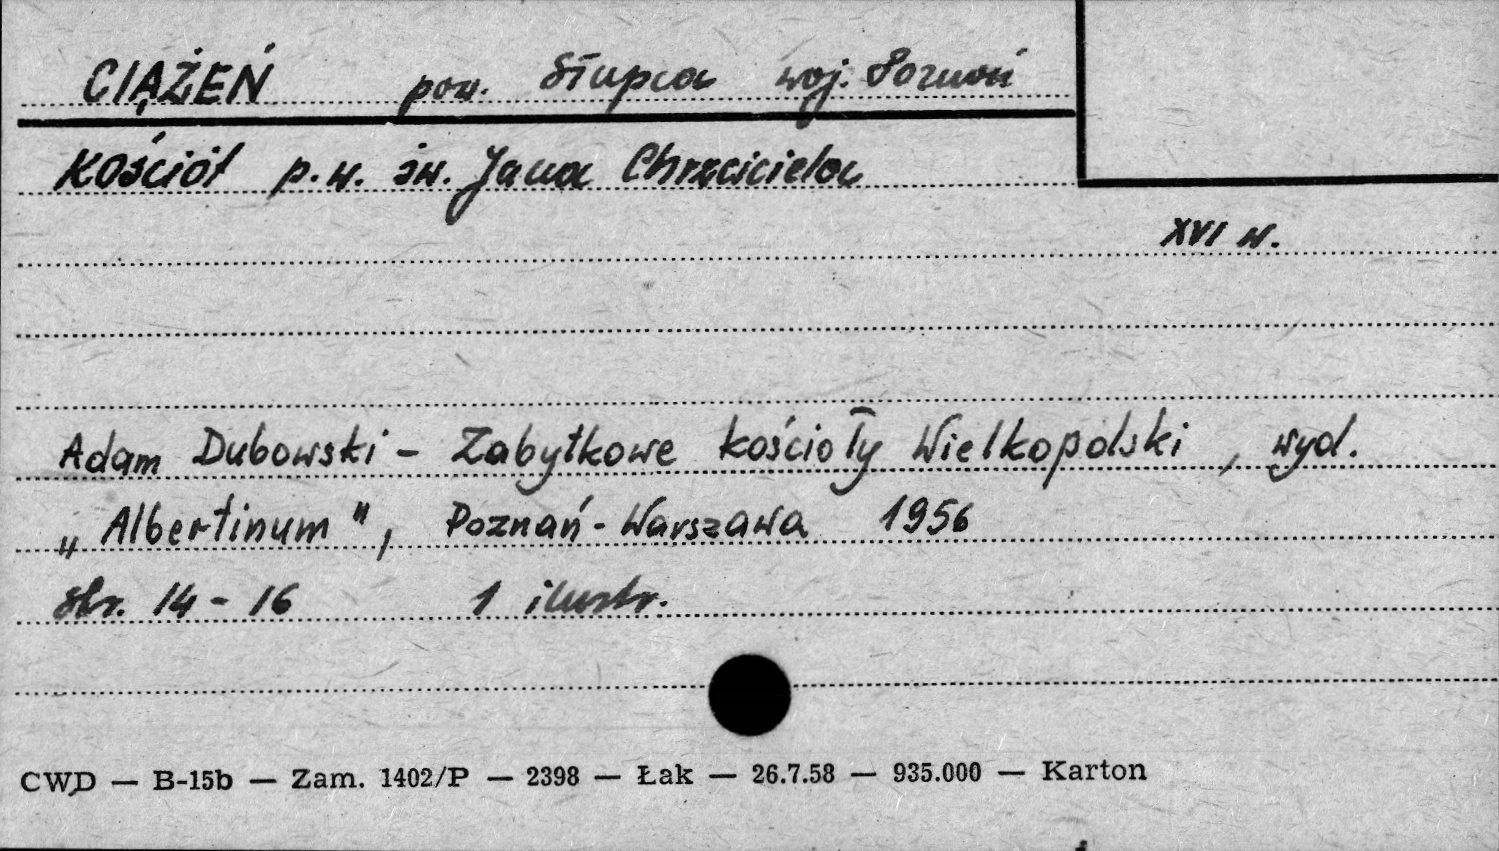 CIĄŻEŃ pow. Słupca woj. Poznań
Kościół p.w. św. Jana Chrzciciela
XVI w.
Adam Dubowski – Zabytkowe kościoły Wielkopolski, wyd.
„Albertinum", Poznań - Warszawa 1956
str. 14 - 16 1 ilustr.
CWD — B-15b — Zam. 1402/P — 2398 — Łak — 26.7.58 — 935.000 — Karton